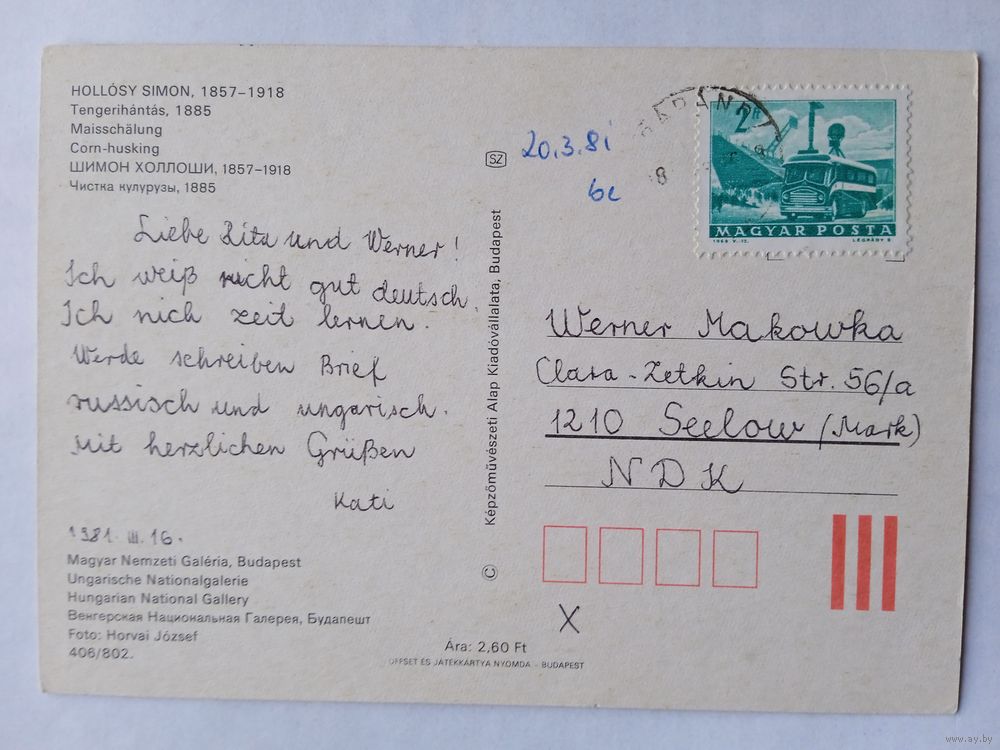 HOLLÓSY SIMON, 1857–1918
Tengerihántás, 1885
Maisschälung
Corn-husking
ШИМОН ХОЛЛОШИ, 1857–1918
Чистка кулурузы, 1885
Liebe Rita und Werner!
Ich weiß nicht gut deutsch.
Ich nich zeit lernen.
Werde schreiben Brief
russisch und ungarisch.
Mit herzlichen Grüßen
Kati
1981. III. 16.
Magyar Nemzeti Galéria, Budapest
Ungarische Nationalgalerie
Hungarian National Gallery
Венгерская Национальная Галерея, Будапешт
Foto: Horvai József
406/802.
Ára: 2,60 Ft
OFFSET ÉS JÁTÉKKÁRTYA NYOMDA – BUDAPEST
© Képzőművészeti Alap Kiadóvállalata, Budapest
SZ
20.3.81
2 Ft
MAGYAR POSTA
1963 V. 12.
LÉGRÁDY S
Werner Makowka
Clara-Zetkin Str. 56/a
1210 Seelow (Mark)
NDK
X
www.ay.by